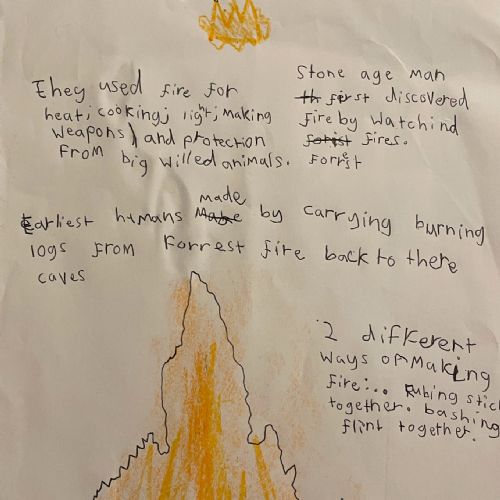 They used fire for
heat; cooking; light; making
weapons) and protection
from big willed animals.
Stone age man
th first discovered
fire by watchind
forist fires.
Forrest
Earliest humans Mabe made by carrying burning
logs from Forrest fire back to there
caves
2 different
ways of making
fire:.. rubing stic
together. bashing
flint together.